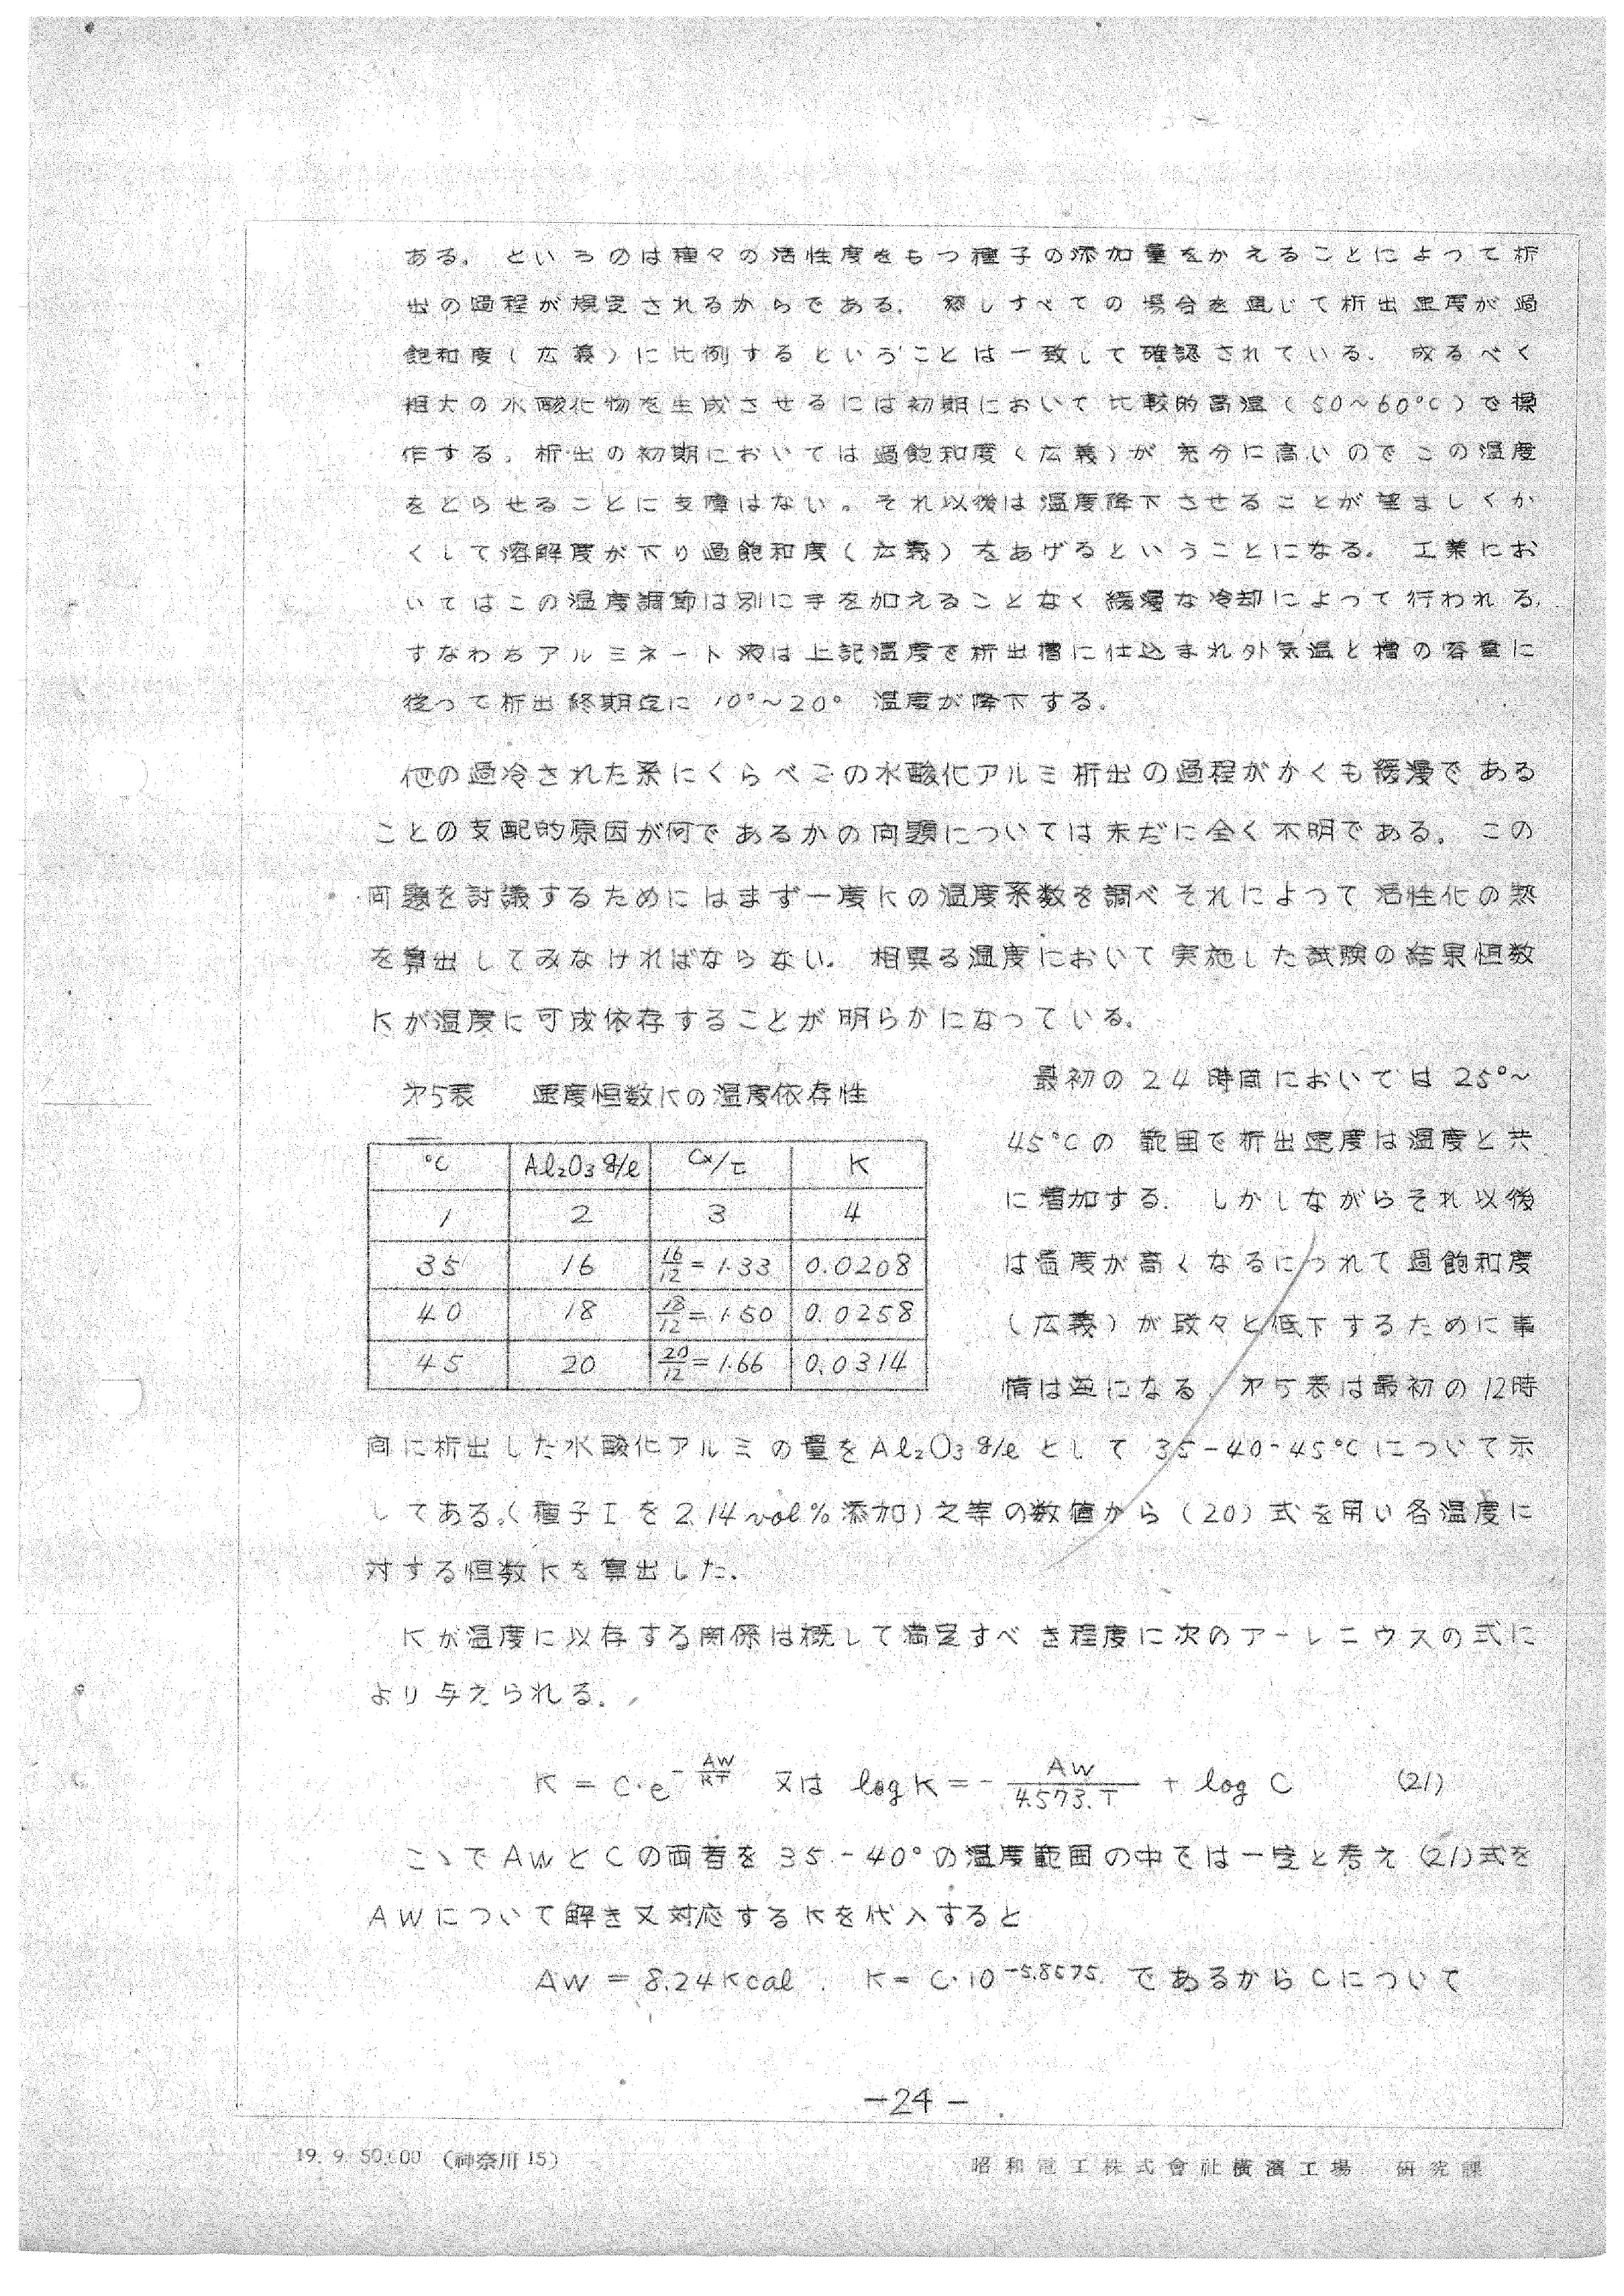 ある。というのは種々の活性度をもつ種子の添加量をかえることによって析
出の過程が規定されるからである。然しすべての場合を通じて析出速度が過
飽和度（広義）に比例するということは一致して確認されている。成るべく
粗大の水酸化物を生成させるには初期において比較的高温（50～60℃）で操
作する。析出の初期においては過飽和度（広義）が充分に高いのでこの温度
をとらせることに支障はない。それ以後は温度降下させることが望ましくか
くして溶解度が下り過飽和度（広義）をあげるということになる。工業にお
いてはこの温度調節は別に手を加えることなく緩漫な冷却によって行われる。
すなわちアルミネート液は上記温度で析出槽に仕込まれ外気温と槽の容量に
従って析出終期迄に10°～20°温度が降下する。
他の過冷された系にくらべこの水酸化アルミ析出の過程がかくも緩漫である
ことの支配的原因が何であるかの问題については未だに全く不明である。この
问題を討議するためにはまず一度Kの温度系数を調べそれによって活性化の熱
を算出してみなければならない。相異る温度において実施した試験の結果恒数
Kが温度に可成依存することが明らかになっている。
才5表 速度恒数Kの温度依存性
℃ Al₂O₃ g/l Cx/τ K
1 2 3 4
35 16 16/12 = 1.33 0.0208
40 18 18/12 = 1.50 0.0258
45 20 20/12 = 1.66 0.0314
最初の24時间においては25°～
45℃の範囲で析出速度は温度と共
に増加する。しかしながらそれ以後
は温度が高くなるにつれて過飽和度
（広義）が段々と低下するために事
情は逆になる。才5表は最初の12時
间に析出した水酸化アルミの量をAl₂O₃ g/lとして35-40-45℃について示
してある。（種子Iを2.14vol%添加）之等の数値から（20）式を用い各温度に
対する恒数Kを算出した。
Kが温度に以存する関係は概して満足すべき程度に次のアーレニウスの式に
より与えられる。
K = C・e^(-AW/RT) 又は log K = - AW/4.573.T + log C (21)
こゝでAWとCの両者を35-40°の温度範囲の中では一定と考え(21)式を
AWについて解き又対応するKを代入すると
AW = 8.24Kcal. K = C・10^-5.8575. であるからCについて
-24-
19. 9. 50,000 （神奈川 15）
昭和電工株式會社横濱工場 研究課